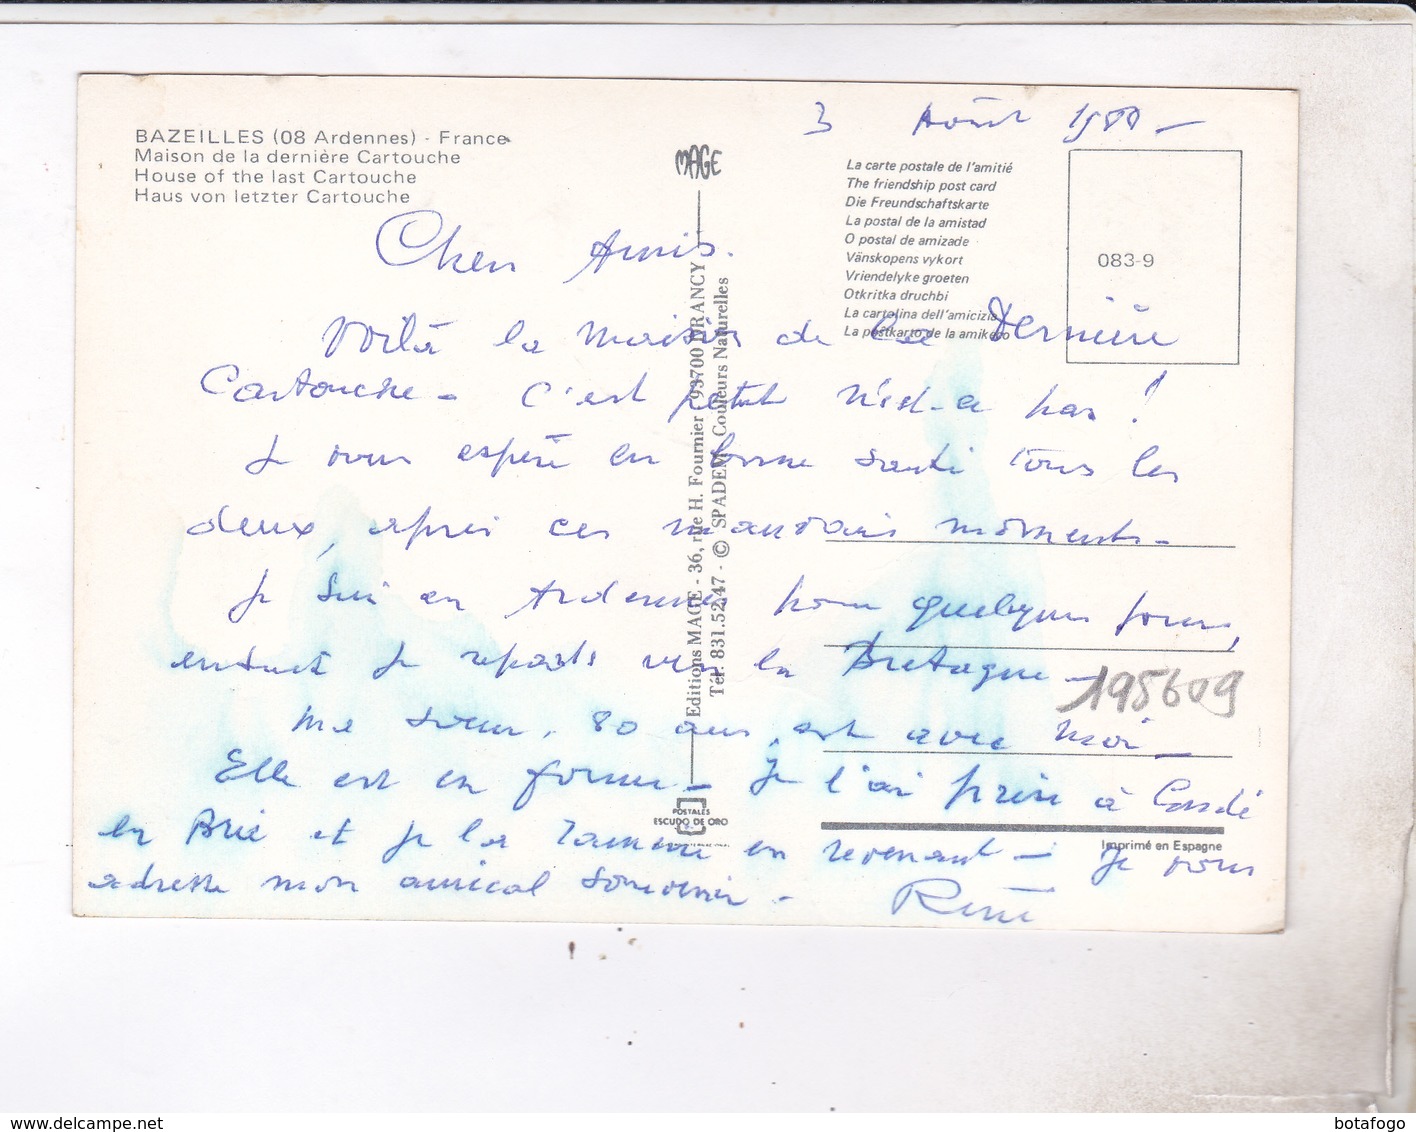 BAZEILLES (08 Ardennes) - France
Maison de la dernière Cartouche
House of the last Cartouche
Haus von letzter Cartouche
MAGE
3 Août
La carte postale de l'amitié
The friendship post card
Die Freundschaftskarte
La postal de la amistad
O postal de amizade
Vänskopens vykort
Vriendelyke groeten
Otkritka druchbi
La cartolina dell'amicizia
La postkarto de la amikeco
083-9
Chers Amis.
Voilà la maison de la Dernière
Cartouche - C'est n'est-ce pas !
Je vous espère en bonne santé tous les
deux, après ces mauvais moments -
Je suis en Ardennes pour quelques jours,
ensuite je repars vers la Bretagne -
Ma sœur, 80 ans, est avec moi -
Elle est en forme - Je l'ai prise à Condé
en Brie et je la ramène en revenant - Je vous
adresse mon amical souvenir -
René
195609
Editions MAGE - 36, rue H. Fournier - 93700 DRANCY
Tél. 831.52.47 - © SPADEM Couleurs Naturelles
POSTALES
ESCUDO DE ORO
Imprimé en Espagne
delcampe.net
botafogo